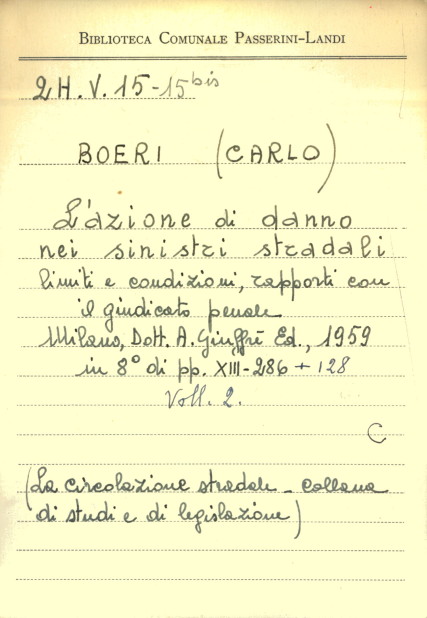 BIBLIOTECA COMUNALE PASSERINI-LANDI
2H.V.15-15bis
BOERI (CARLO)
L'azione di danno
nei sinistri stradali
limiti e condizioni, rapporti con
il giudicato penale
Milano, Dott. A. Giuffrè Ed., 1959
in 8° di pp. XIII-286 + 128
Voll. 2.
C
(La circolazione stradale - collana
di studi e di legislazione)